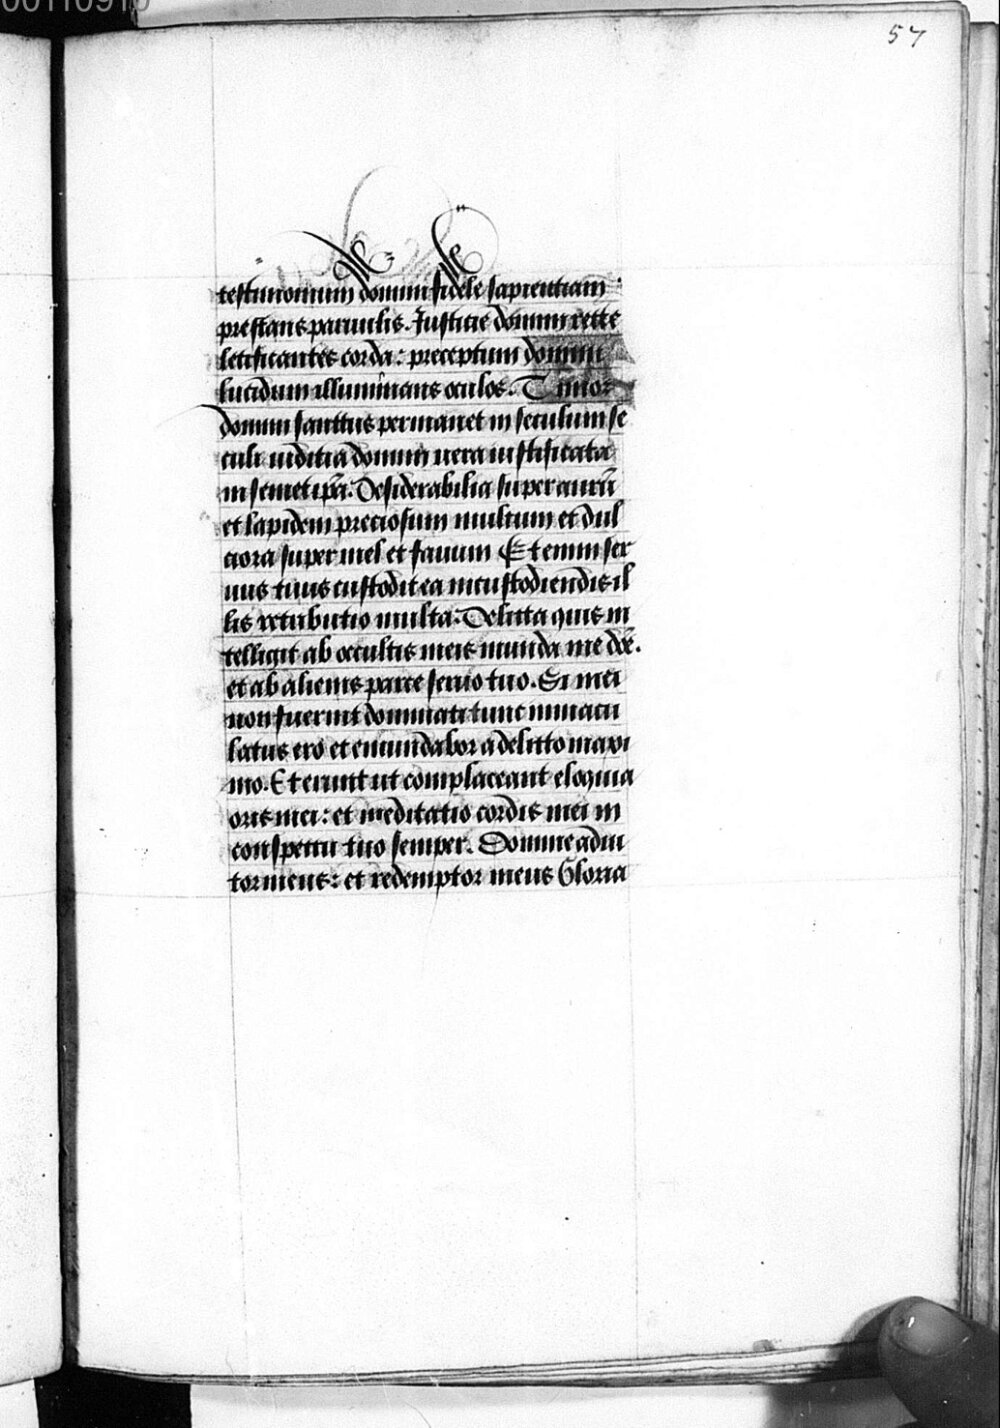 00110910
57
testimonium domini fidele sapientiam
prestans paruulis. Justicie domini recte
letificantes corda: preceptum domini
lucidum illuminans oculos. Timor
domini sanctus permanet in seculum se
culi iudicia domini uera iustificata
in semetipa. Desiderabilia super auru
et lapidem preciosum multum et dul
ciora super mel et fauum Etenim ser
uus tuus custodit ea in custodiendis il
lis retributio multa. Delicta quis in
telligit ab occultis meis munda me dne.
et ab alienis parce seruo tuo. Si mei
non fuerint dominati tunc inmacu
latus ero et emundabor a delicto maxi
mo. Et erunt ut complaceant eloquia
oris mei: et meditatio cordis mei in
conspectu tuo semper. Domine adiu
tor meus: et redemptor meus Gloria